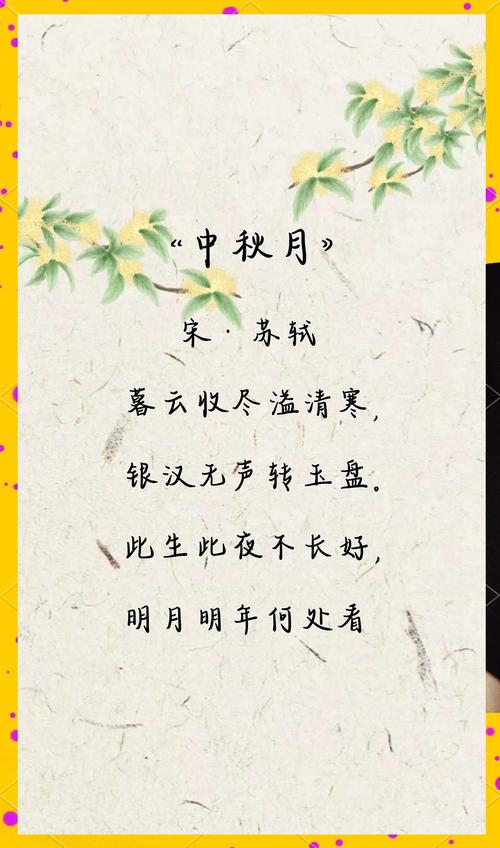 《中秋月》
宋·苏轼
暮云收尽溢清寒,
银汉无声转玉盘。
此生此夜不长好,
明月明年何处看